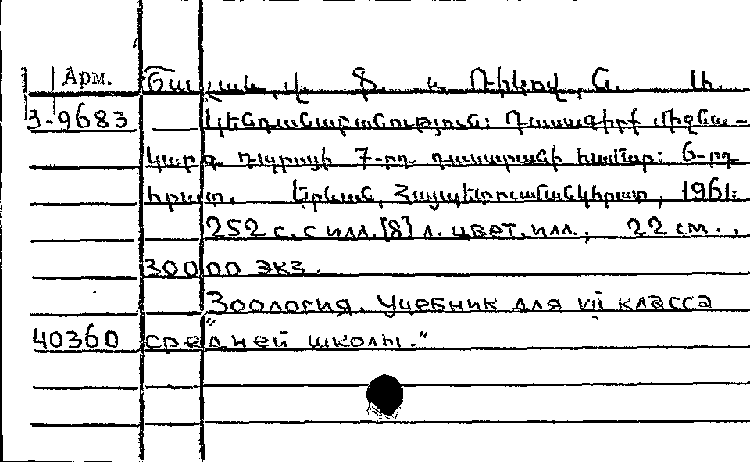 Арм. Ցալլակ, վ. Ֆ. և Ռիկով, Ն. Ա.
3-9683 Կենդանաբանություն: Դասագիրք միջնա-
կարգ դպրոցի 7-րդ դասարանի համար: 6-րդ
հրատ. Երևան, Հայպետուսմանկհրատ, 1961:
252 с. с илл. [8] л. цвет. илл., 22 см.,
30000 экз.
"Зоология. Учебник для VII класса
40360 средней школы."